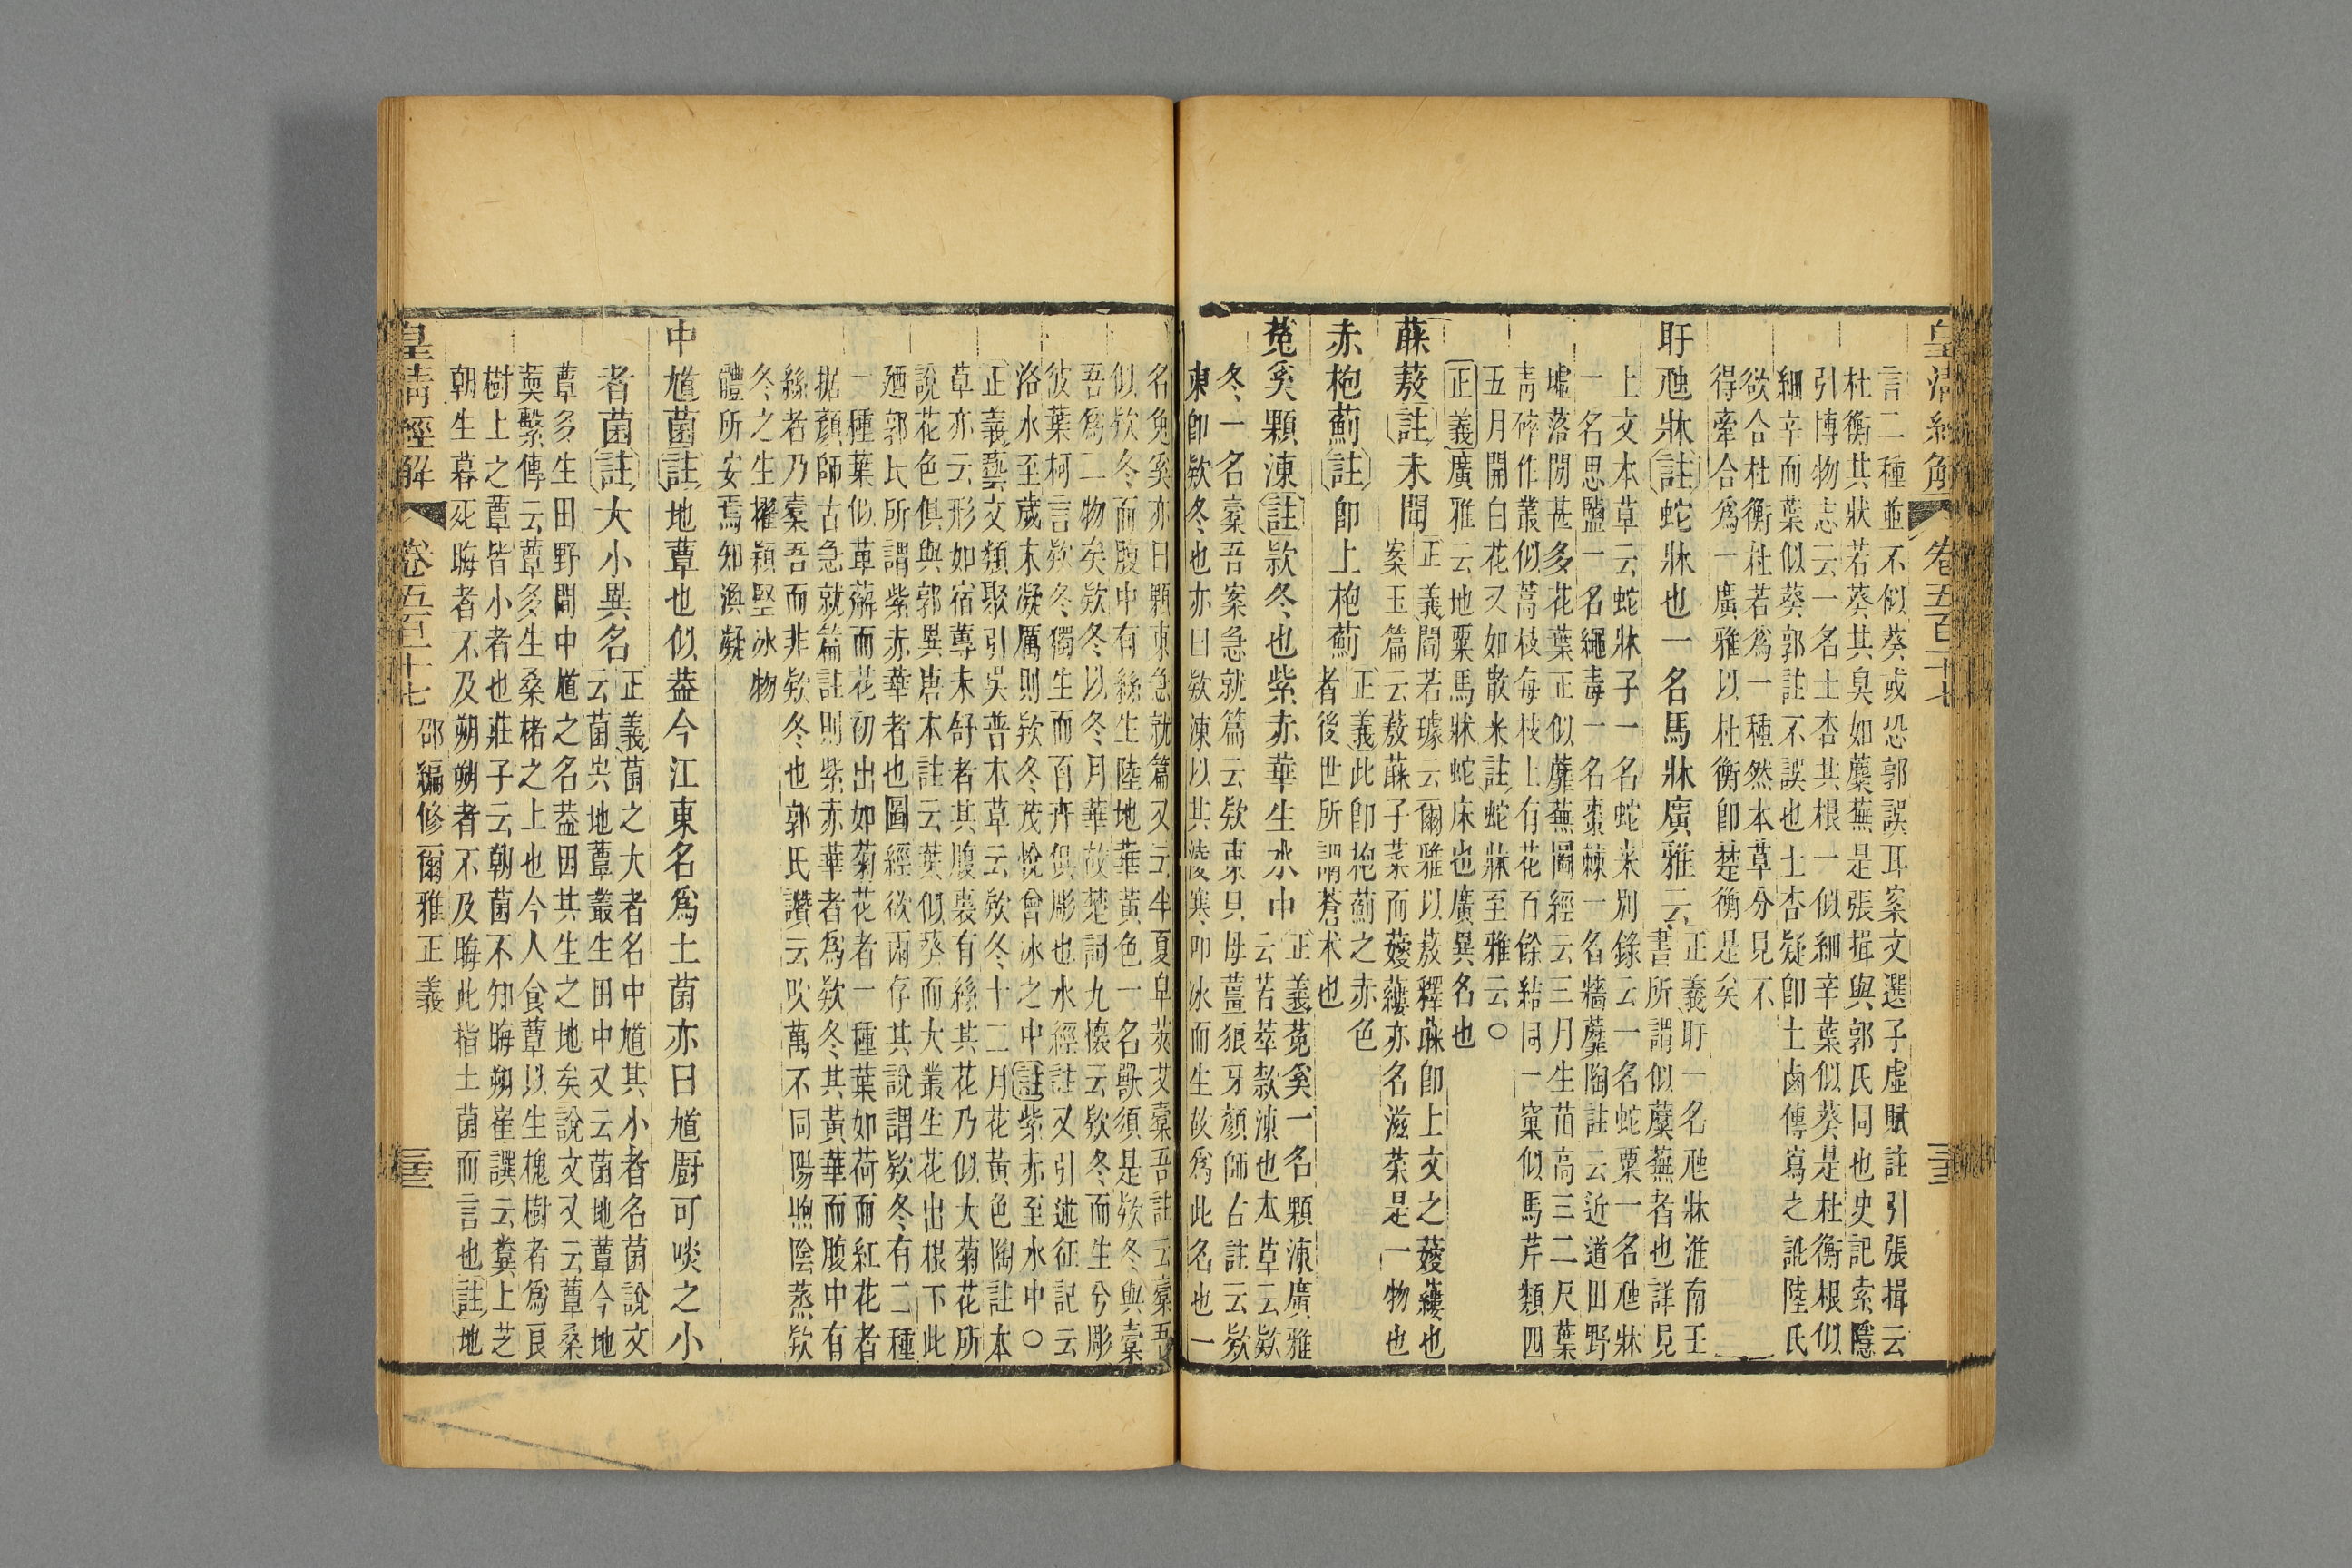 皇清經解 卷五百二十七
言二種並不似葵或恐郭誤耳案文選子虛賦註引張揖云
杜衡其狀若葵其臭如蘪蕪是張揖與郭氏同也史記索隱
引博物志云一名土杏其根一似細辛葉似葵是杜衡根似
細辛而葉似葵郭註不誤也土杏疑卽土鹵傳寫之訛陸氏
欲合杜衡杜若爲一種然本草分見不
得牽合爲一廣雅以杜衡卽楚衡是矣
盱虺牀註蛇牀也一名馬牀廣雅云正義盱一名虺牀淮南王
書所謂似蘪蕪者也詳見
上文本草云蛇牀子一名蛇米別錄云一名蛇粟一名虺牀
一名思鹽一名繩毒一名棗棘一名牆蘼陶註云近道田野
墟落閒甚多花葉正似蘼蕪圖經云三月生苗高三二尺葉
靑碎作叢似蒿枝每枝上有花百餘結同一窠似馬芹類四
五月開白花又如散米註蛇牀至雅云○
正義廣雅云地粟馬牀蛇床也廣異名也
蔝蔜註未聞正義閻若璩云爾雅以蔜釋蔝卽上文之薆蔞也
案玉篇云蔜蔝子菜而薆蔞亦名滋菜是一物也
赤枹薊註卽上枹薊正義此卽枹薊之赤色
者後世所謂蒼术也
菟奚顆涷註款冬也紫赤華生水中正義菟奚一名顆涷廣雅
云苦萃款涷也本草云欵
冬一名橐吾案急就篇云欵東貝母薑狼牙顏師古註云欵
東卽欵冬也亦曰欵涷以其淩寒叩冰而生故爲此名也一
名兔奚亦曰顆東急就篇又云半夏皁莢艾橐吾註云橐吾
似欵冬而腹中有絲生陸地華黃色一名獸須是欵冬與橐
吾爲二物矣欵冬以冬月華故楚詞九懷云欵冬而生兮彫
彼葉柯言欵冬獨生而百卉俱彫也水經註又引述征記云
洛水至歲末凝厲則欵冬茂悅曾冰之中註紫赤至水中○
正義藝文類聚引吳普本草云欵冬十二月花黃色陶註本
草亦云形如宿蓴未舒者其腹裹有絲其花乃似大菊花所
說花色俱與郭異唐本註云葉似葵而大叢生花出根下此
廼郭氏所謂紫赤華者也圖經欲兩存其說謂欵冬有二種
一種葉似萆薢而花初出如菊花者一種葉如荷而紅花者
据顏師古急就篇註則紫赤華者爲欵冬其黃華而腹中有
絲者乃橐吾而非欵冬也郭氏讚云吹萬不同陽煦陰蒸欵
冬之生擢穎堅冰物
體所安焉知渙凝
中馗菌註地蕈也似葢今江東名爲土菌亦曰馗厨可啖之小
者菌註大小異名正義菌之大者名中馗其小者名菌說文
云菌㞢地蕈叢生田中又云菌地蕈今地
蕈多生田野閒中馗之名葢因其生之地矣說文又云蕈桑
䓴繫傳云蕈多生桑楮之上也今人食蕈以生槐樹者爲良
樹上之蕈皆小者也莊子云朝菌不知晦朔崔譔云糞上芝
朝生暮死晦者不及朔朔者不及晦此指土菌而言也註地
皇淸經解 卷五百二十七 邵編修爾雅正義